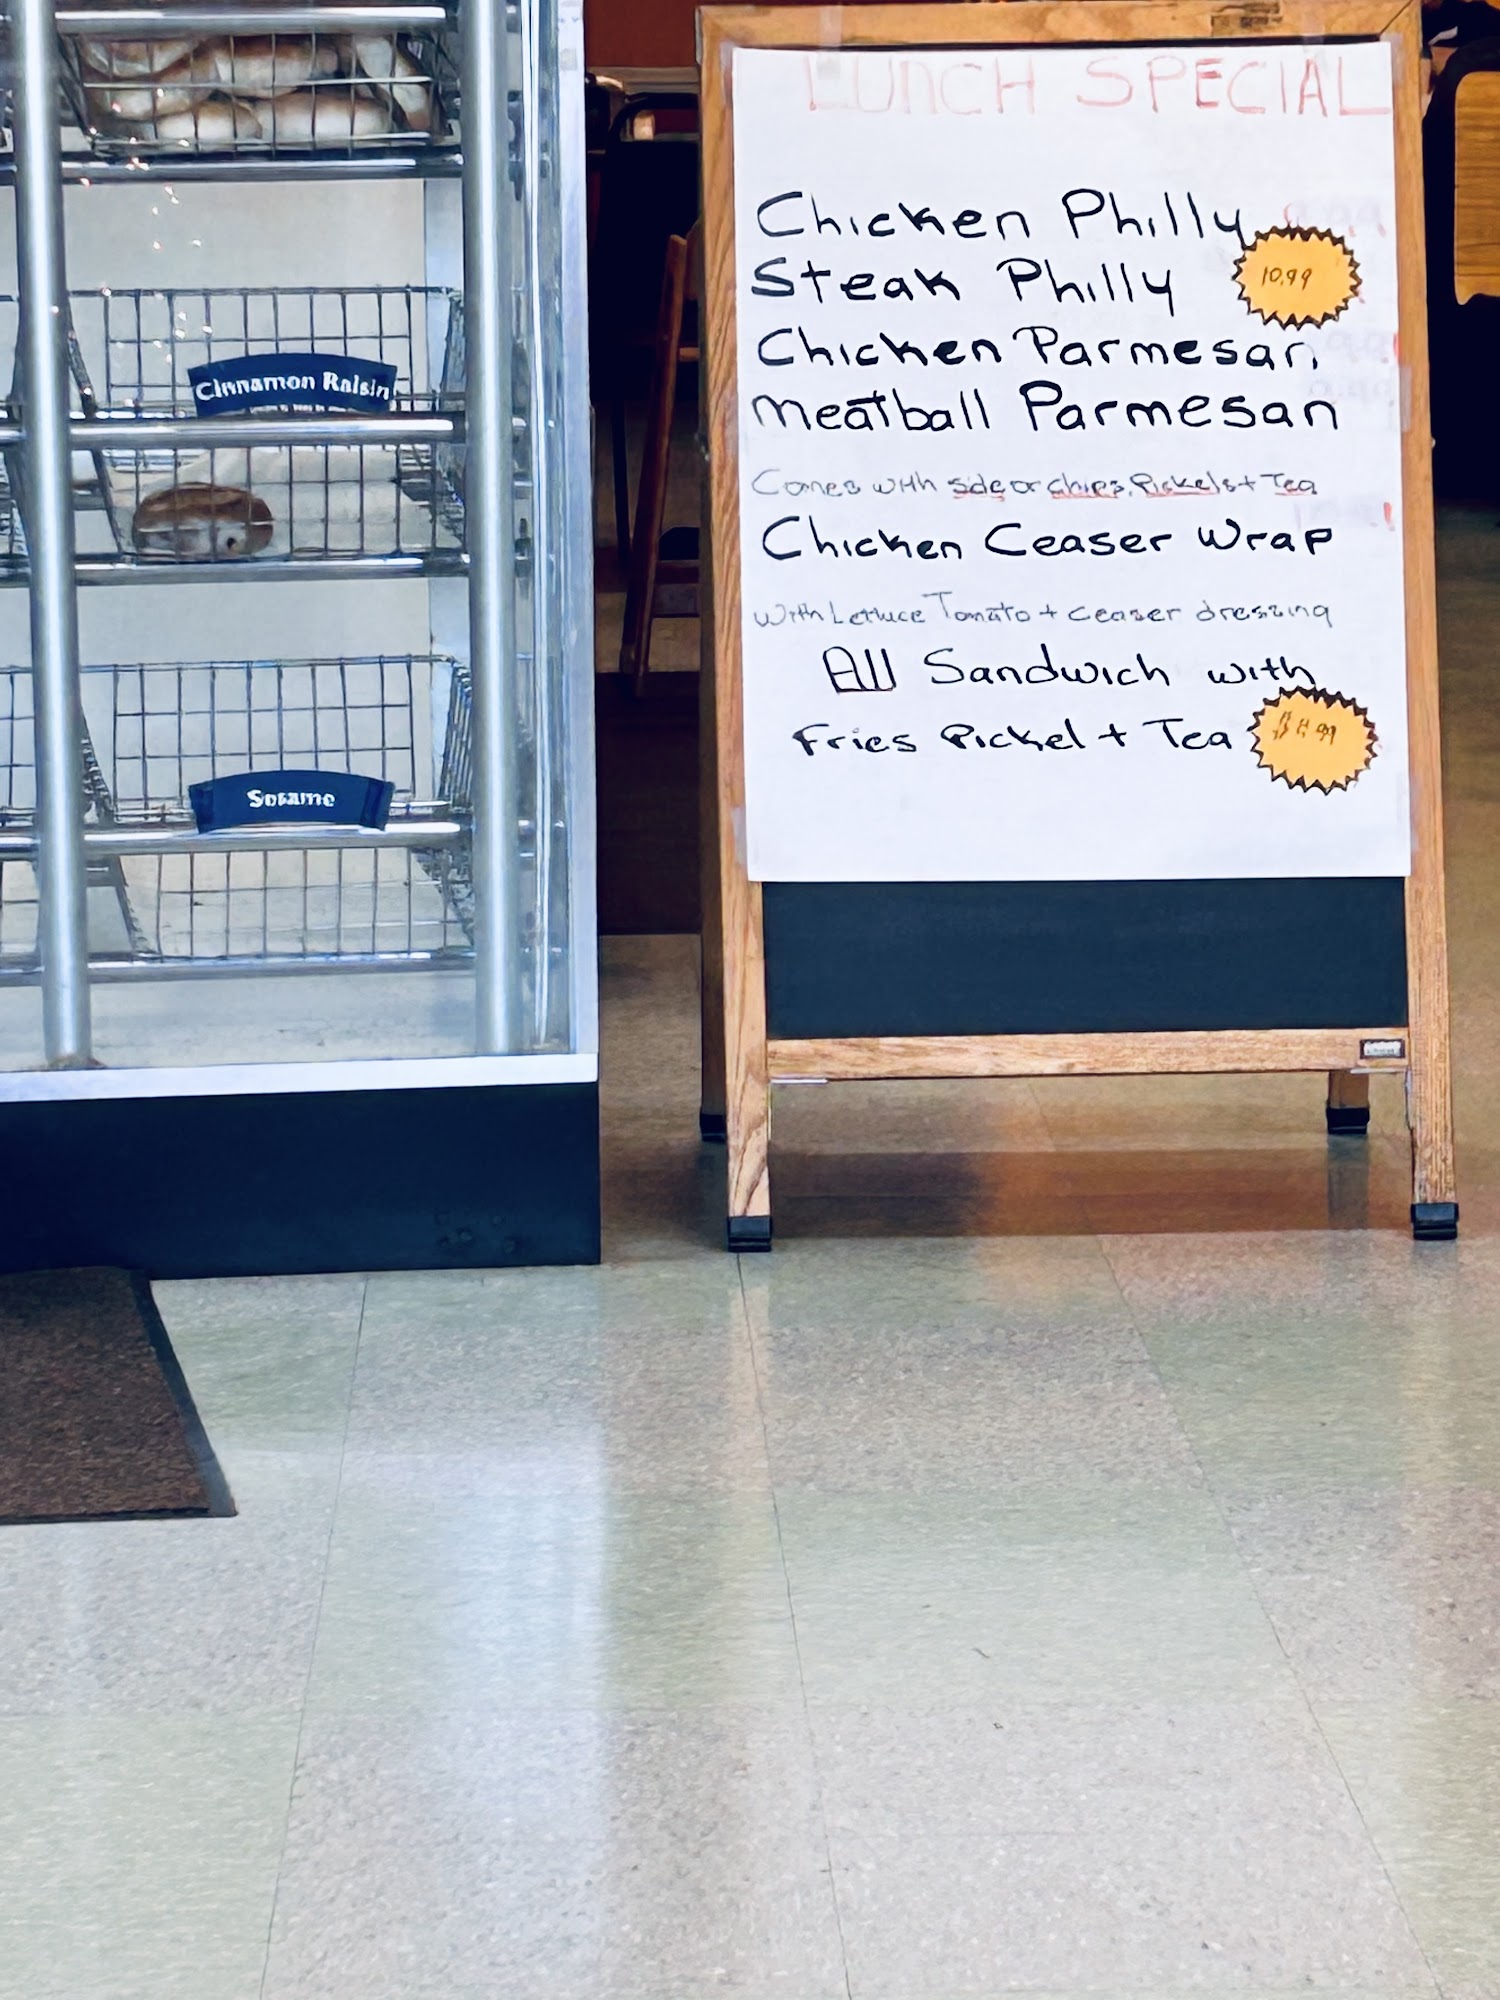 LUNCH SPECIAL
Chicken Philly
Steak Philly
10.99
Chicken Parmesan
Meatball Parmesan
Comes with side or chips, Pickels + Tea
Chicken Ceaser Wrap
With Lettuce Tomato + Ceaser dressing
All Sandwich with
Fries Pickel + Tea
Cinnamon Raisin
Sesame